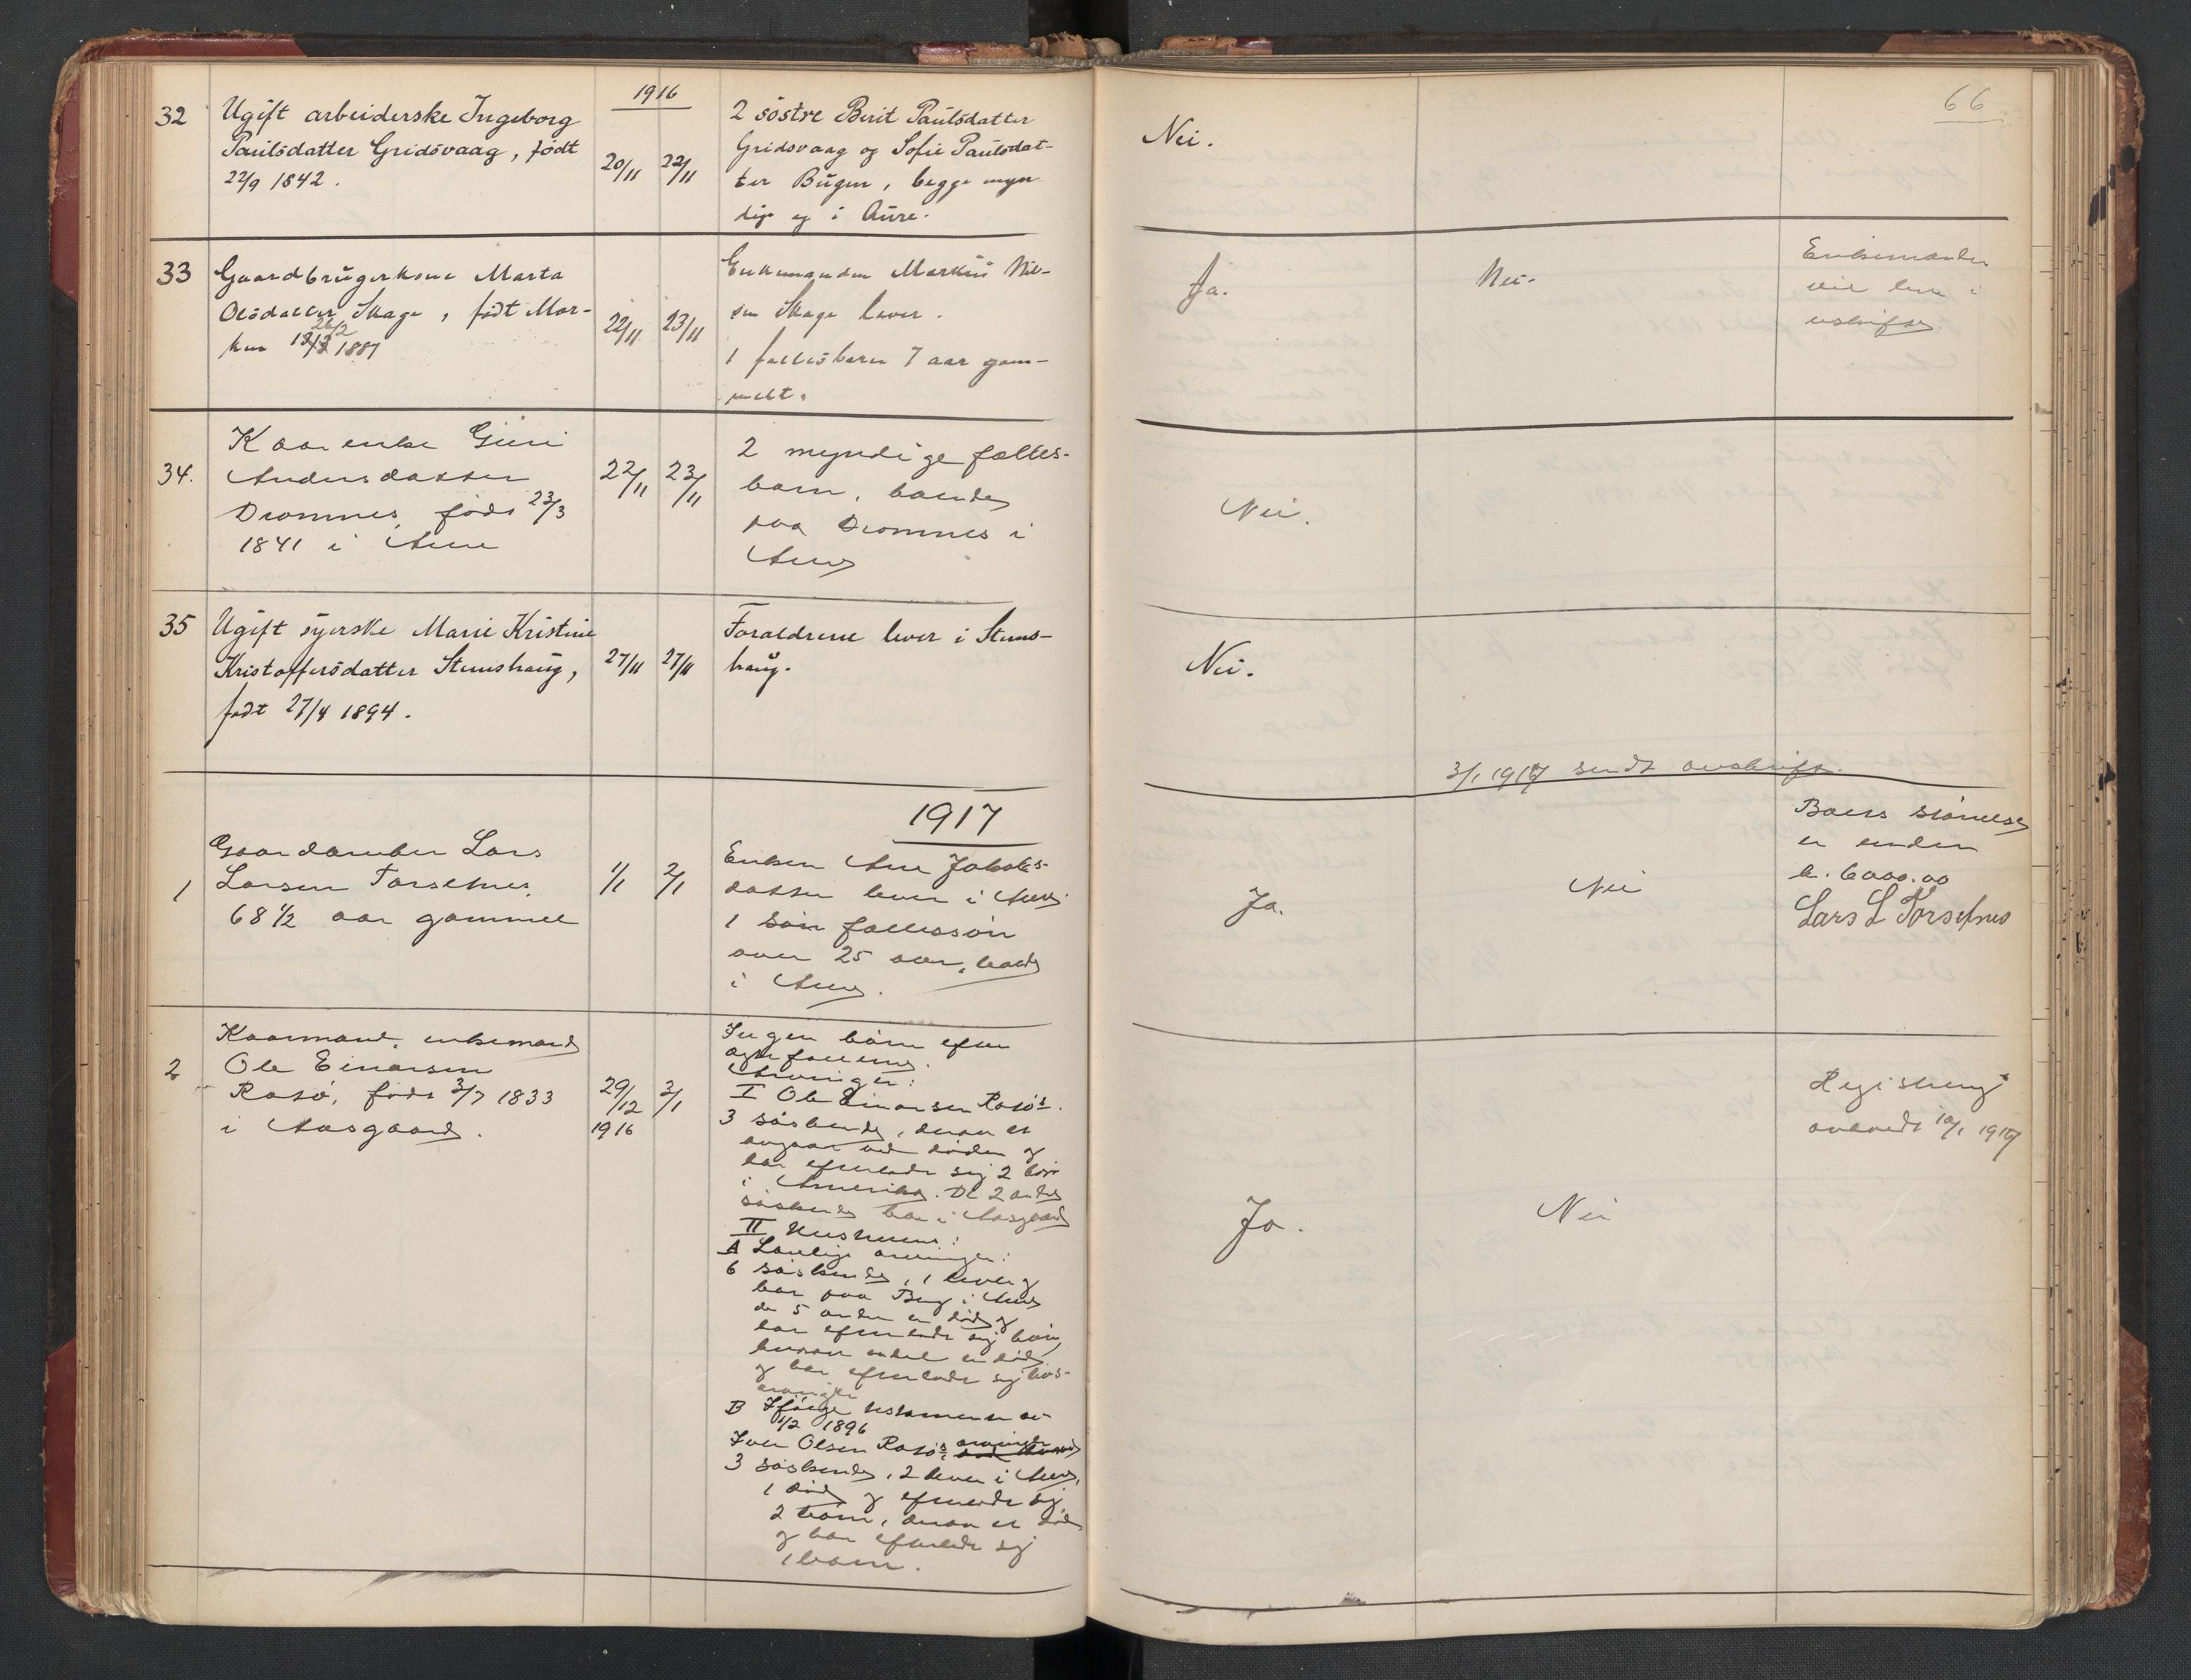 1916
32
Ugift arbeiderske Ingeborg
Paulsdatter Gridsvaag, født
22/9 1842.
20/11
22/11
2 søstre Berit Paulsdatter
Gridsvaag og Sofie Paulsdat-
ter Bugen, begge myn
dige og i Aure.
Nei.
66
33
Gaardbrugerkone Marta
Olsdatter Skage, født Mar-
kus 26/2 1887
22/11
23/11
Enkemanden Markus Nil-
sen Skage lever.
1 fællesbarn 7 aar gam-
melt.
Ja.
Nei.
Enkemanden
vil leve i
uskifte
34.
Kaarenke Guri
Andersdatter
Dromnes, født 23/3
1841 i Aure
22/11
23/11
2 myndige fælles-
barn, boende
paa Dromnes i
Aure
Nei.
35
Ugift syerske Marie Kristine
Kristoffersdatter Stemshaug,
født 27/4 1894.
27/11
27/11
Forældrene lever i Stems-
haug.
Nei.
3/1 1917 sendt avskrift.
1917
1
Gaardbruker Lars
Larsen Torsetnes
68 1/2 aar gammel
1/1
2/1
Enken Ane Jakobs-
datter lever i Aure
1 søn fællessøn
over 25 aar, boende
i Aure.
Ja.
Nei
Boets størrelse
er under
k. 6000.00
Lars L Torsetnes
2
Kaarmand, enkemand
Ole Einarsen
Rosø, født 3/7 1833
i Aasgaard.
29/12
1916
3/1
Ingen børn efter
ægtefællerne.
Arvinger:
I Ole Einarsen Rosø's.
3 søskende, derav er
en gaat ved døden og
har efterladt sig 2 børn
i Amerika. De 2 andre
søskende bor i Aasgaard
II Hustruens:
A Lovlige arvinger:
6 søskende, 1 lever og
bor paa Berg i Aure
de 5 andre er døde og
har efterladt sig børn,
hvorav endel er døde
og har efterladt sig livs-
arvinger
B Ifølge testamente av
1/2 1896
Iver Olsen Rosø's arvinger
3 søskende, 2 lever i Aure,
1 død og efterladt sig
2 børn, derav er død
og har efterladt sig
1 barn.
Ja.
Nei
Registrering
avholdt 10/1 1917